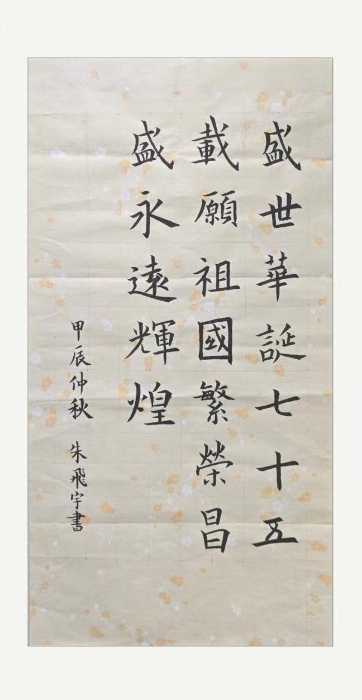 盛世華誕七十五
載願祖國繁榮昌
盛永遠輝煌
甲辰仲秋 朱飛宇書